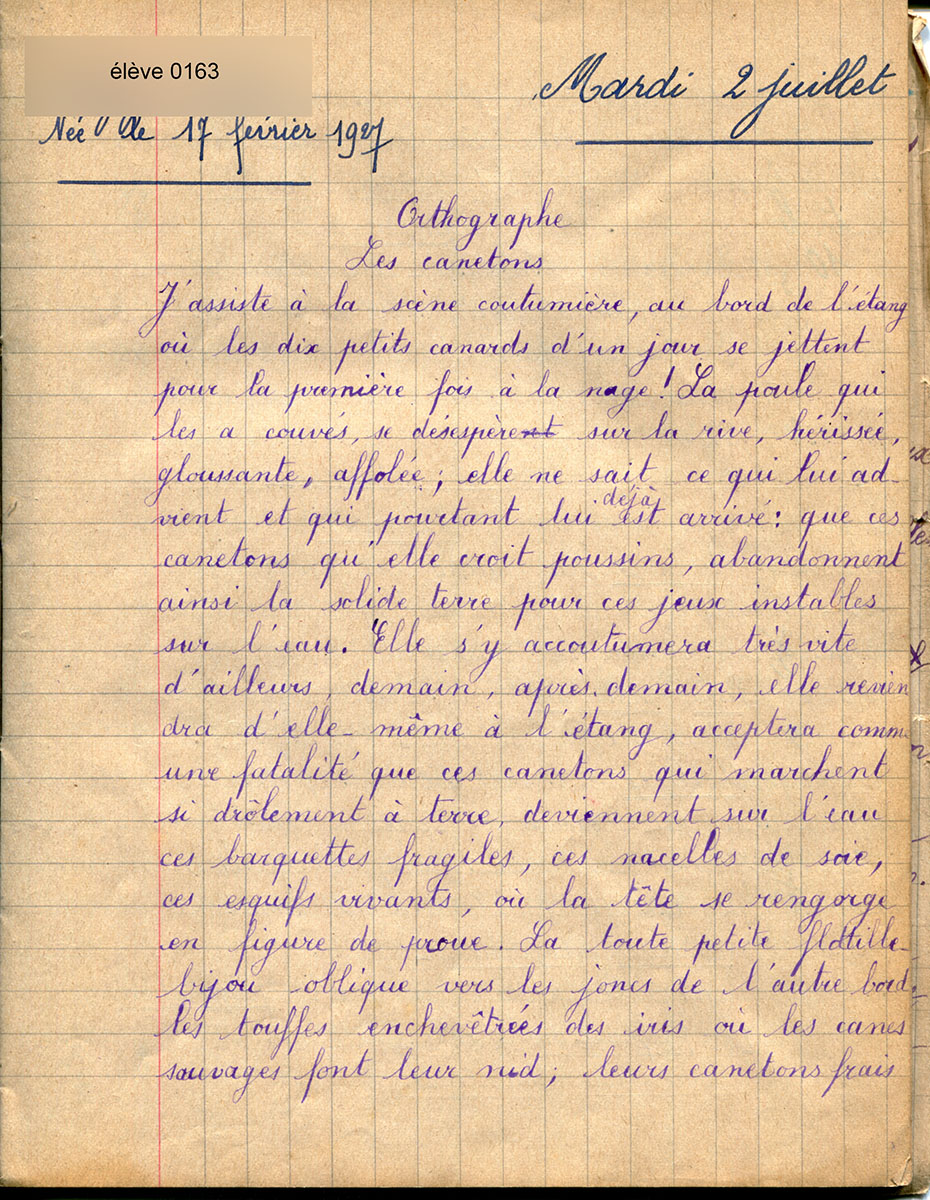 élève 0163
Mardi 2 juillet
Née le 17 février 1927
Orthographe
Les canetons
J'assiste à la scène coutumière, au bord de l'étang
où les dix petits canards d'un jour se jettent
pour la première fois à la nage! La poule qui
les a couvés, se désespèrent sur la rive, hérissée,
gloussante, affolée; elle ne sait ce qui lui ad-
vient et qui pourtant lui est déjà arrivé: que ces
canetons qu'elle croit poussins, abandonnent
ainsi la solide terre pour ces jeux instables
sur l'eau. Elle s'y accoutumera très vite
d'ailleurs, demain, après-demain, elle revien
dra d'elle-même à l'étang, acceptera comme
une fatalité que ces canetons qui marchent
si drôlement à terre, deviennent sur l'eau
ces barquettes fragiles, ces nacelles de soie,
ces esquifs vivants, où la tête se rengorge
en figure de proue. La toute petite flotille-
bijou oblique vers les joncs de l'autre bord,
les touffes enchevêtrées des iris où les canes
sauvages font leur nid; leurs canetons frais